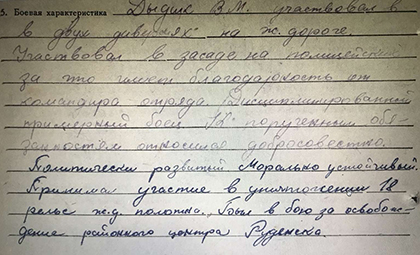 5. Боевая характеристика Дыдик В.М. участвовал в
в двух диверсиях на ж. дороге.
Участвовал в засаде на полицейских
за что имеет благодарность от
командира отряда. Дисциплинированный
примерный боец. К порученным обя-
занностям относился добросовестно.
Политически развитый Морально устойчивый.
Принимал участие в уничтожении 18
рельс ж.д. полотна. Был в бою за освобож-
дение районного центра Руденска.